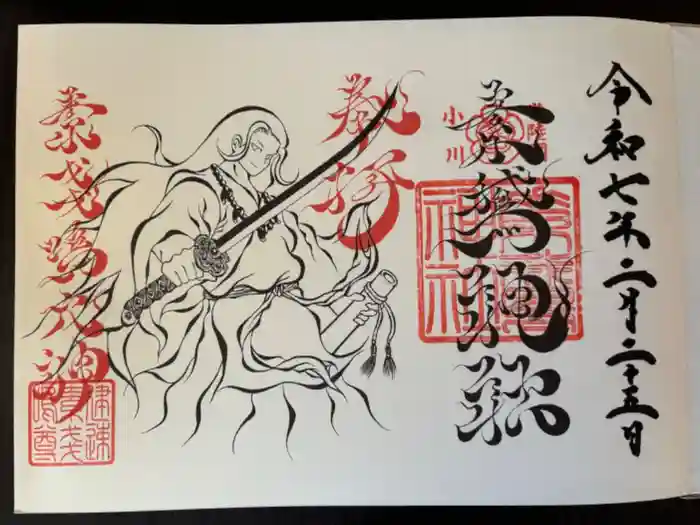 令和七年二月二十五日
常陸
小川
素鵞神社
奉拝
建速
素戔
嗚尊